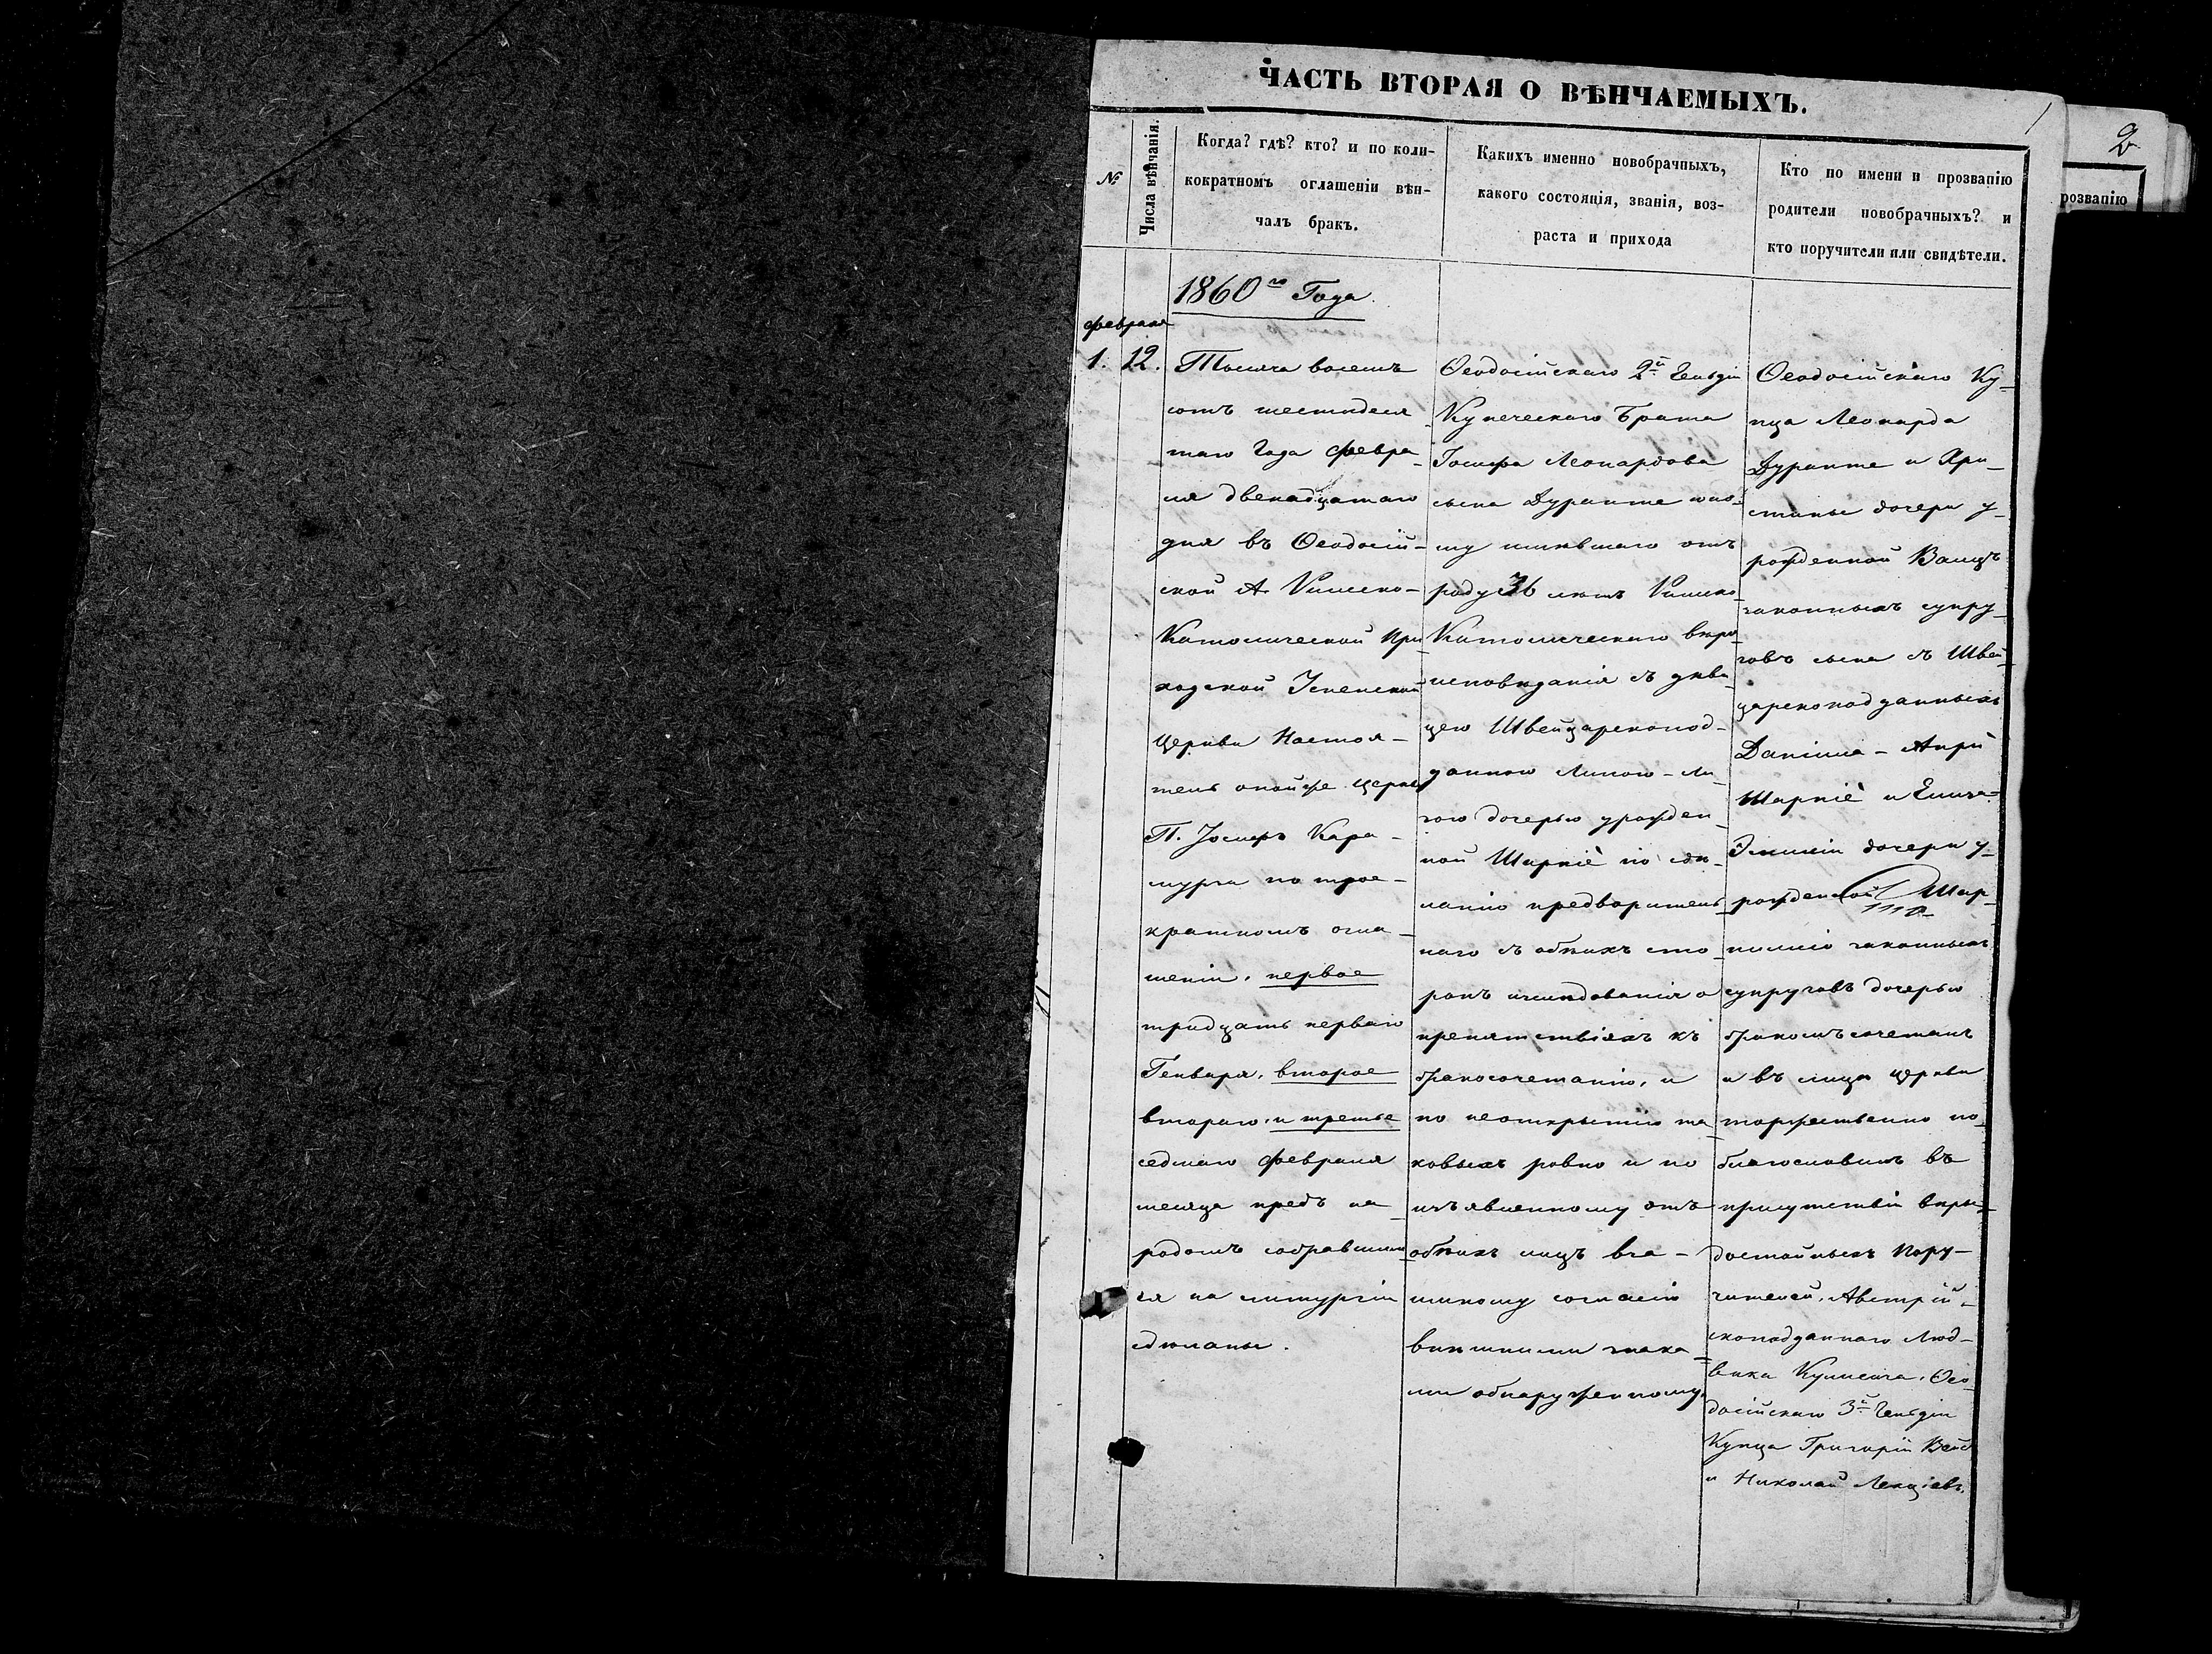 ЧАСТЬ ВТОРАЯ О ВѢНЧАЕМЫХЪ.
1
2
№
Числа вѣнчанія.
Когда? гдѣ? кто? и по коли-
кократномъ оглашеніи вѣн-
чалъ бракъ.
Какихъ именно новобрачныхъ,
какого состоянія, званія, воз-
раста и прихода
Кто по имени и прозванію
родители новобрачныхъ? и
кто поручители или свидѣтели.
розванію
1860го Года.
февраля
1. 12.
Тысяча восемъ
сотъ шестидеся
таго Года Февра-
ля двенадцатаго
дня въ Ѳеодосій-
ской А. Римско-
Католической При
ходской Успенской
Церкви Настоя-
тель онойже Церкви
П. Іосифъ Кара-
мурза по трое-
кратномъ огла-
шеніи, первое
тридцать перваго
Генваря, второе
втораго, и третье
седмаго Февраля
месяца предъ на-
родомъ собравшим
ся на литургіи
сдѣланы.
Ѳеодосійскаго 2й Гильдіи
Купеческаго Брата
Іосифа Леонардова
сына Дуранте юно-
шу имѣвшаго отъ
роду 36 летъ Римско
Католическаго вѣро
исповѣданія съ дѣви
цею Швейцарскопод-
данною Линою-
зою дочерью урожден-
ной Шарпіè по сдѣ-
ланію предваритель
наго съ обѣихъ сто
ронъ изслѣдованія о
препятствіяхъ къ
бракосочетанію, и
по неоткрытію та
ковыхъ ровно и по
изъявленному отъ
обѣихъ лицъ вза-
имному согласію
внѣшними знака-
ми обнаруженному,
Ѳеодосійскаго Ку-
пца Леонарда
Дуранте и Хри-
стины дочери у-
рожденной
законныхъ супру-
говъ сына съ Швей
царскоподданныхъ
Даніила - Анри
Шарпіè и Елиза-
Эмиліи дочери у-
рожденной Шар-
законныхъ
супруговъ дочерью
бракомъ сочеталъ
и въ лице церкви
торжественно по-
благословилъ въ
присутствіи вѣро-
достойныхъ Пору-
чителей, Австрій-
скоподданнаго Люд-
вика Ѳео-
досійскаго 3й Гильдіи
Купца Григорій
и Николай